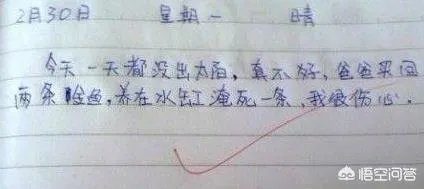 2月30日 星期一 晴
今天一天都没出太阳,真不好,爸爸买回
两条金鱼,养在水缸淹死一条,我很伤心.
悟空问答